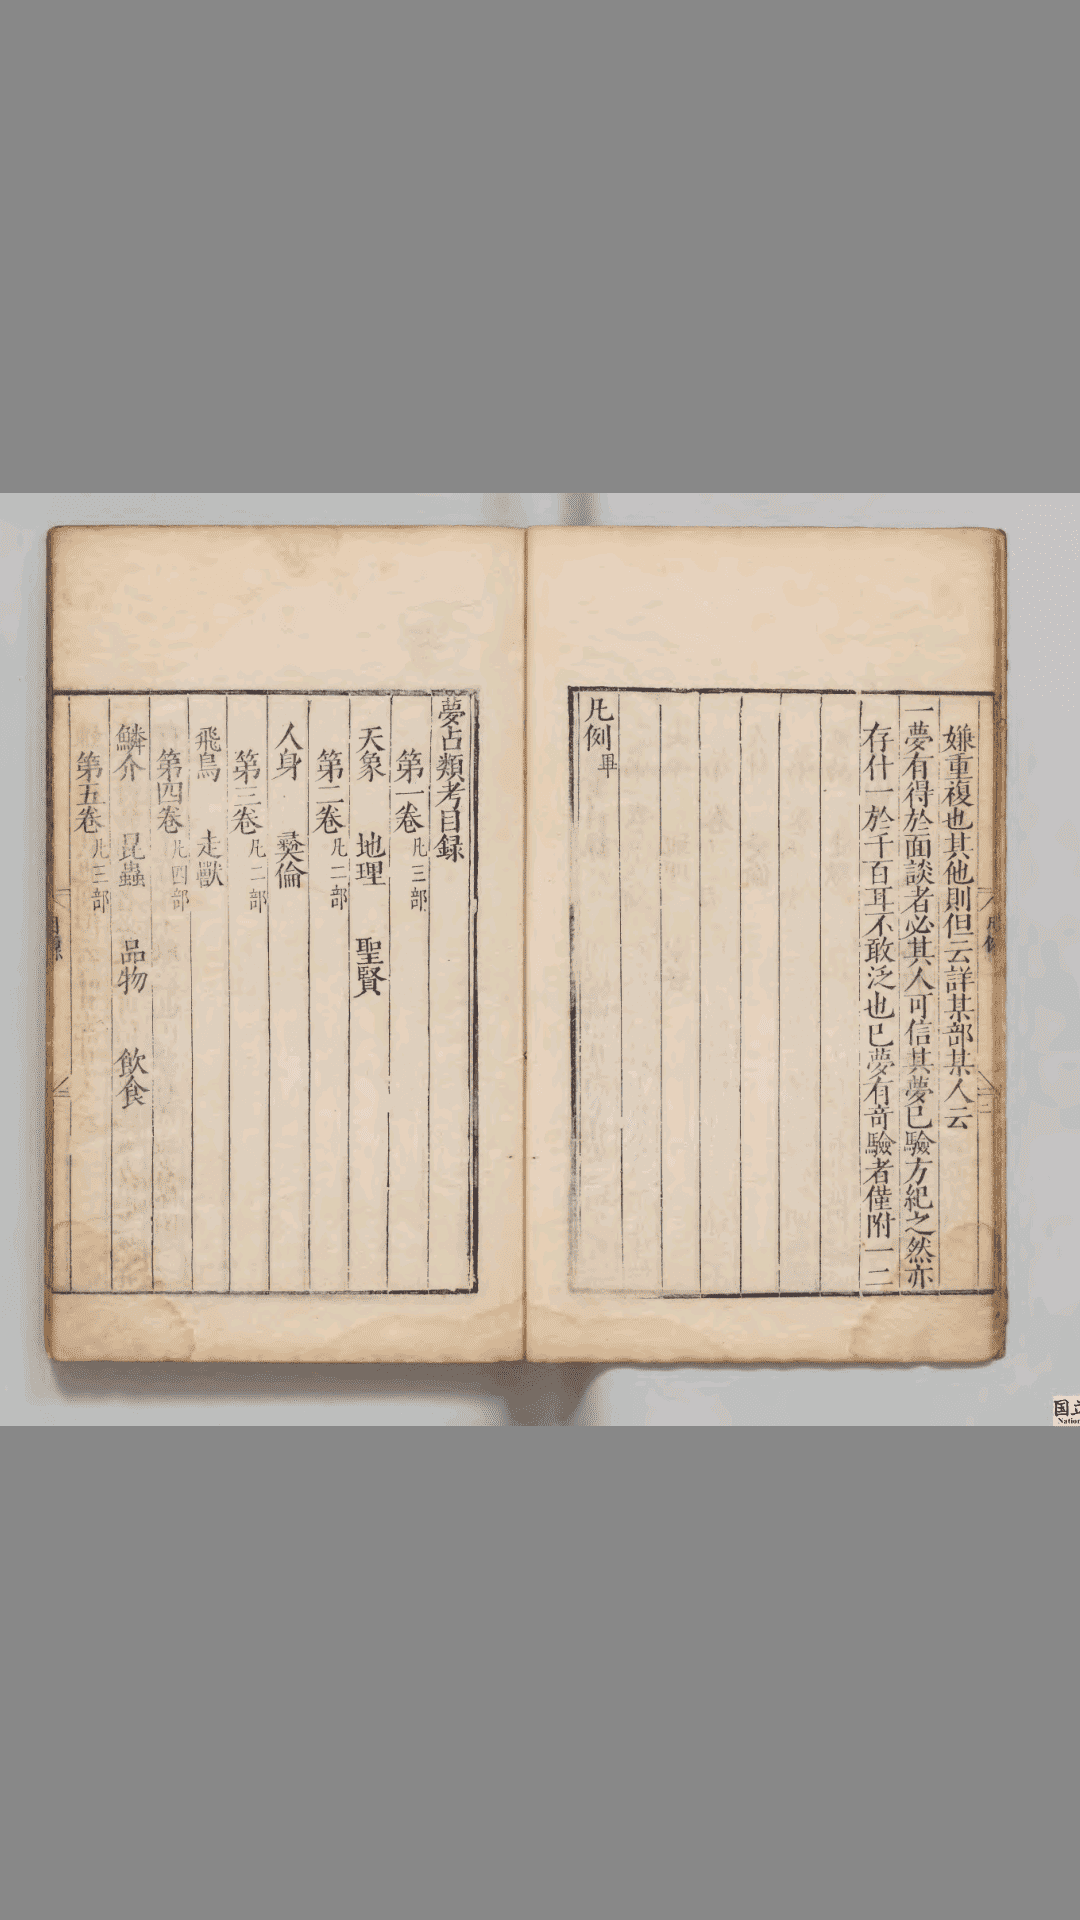 嫌重複也其他則但云詳某部某人云
一夢有得於面談者必其人可信其夢已驗方紀之然亦
存什一於千百耳不敢泛也已夢有奇驗者僅附一二
凡例畢
夢占類考目録
第一卷凡三部
天象 地理 聖賢
第二卷凡二部
人身 彛倫
第三卷凡二部
飛鳥 走獸
第四卷凡四部
鱗介 昆蟲 品物 飲食
第五卷凡三部
国立
Nation